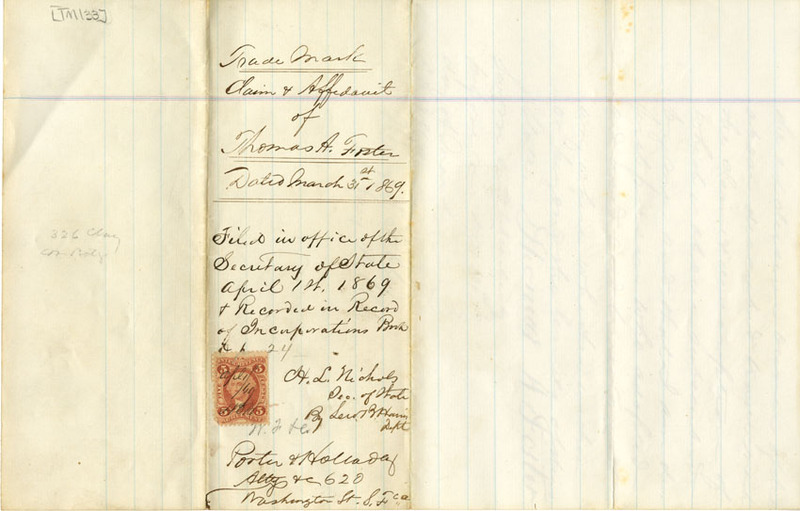 [TM133]
Trade Mark
Claim & Affidavit
of
Thomas A. Foster
Dated March 31st 1869.
Filed in office of the
Secretary of State
April 1st. 1869
& Recorded in Record
of Incorporations Book
24
H. L. Nichols
Sec. of State
By
Dept
5 5
5 5
W. F & Co
326 Clay
Porter & Holladay
Attys &c 620
Washington St. S. F. ca